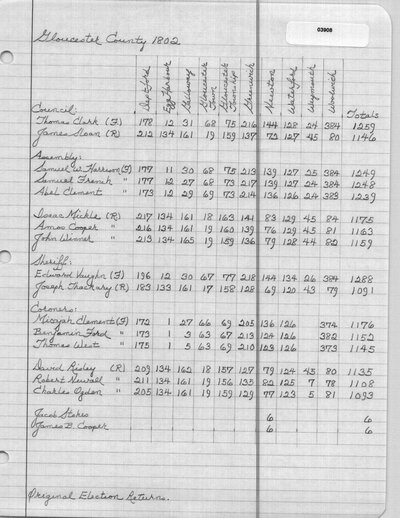 03908
Gloucester County 1802
Deptford Egg Harbour Galloway Gloucester Town Gloucester Township Greenwich Newton Waterford Weymouth Woolwich
Council: Totals
Thomas Clark (F) 178 12 31 68 75 216 144 128 24 384 1259
James Sloan (R) 212 134 161 19 159 137 72 127 45 80 1146
Assembly:
Samuel W. Harrison (F) 177 11 30 68 75 213 139 127 25 384 1249
Samuel French " 177 12 27 68 73 217 139 127 24 384 1248
Abel Clement " 173 12 29 69 73 214 136 126 24 383 1239
Isaac Mickle (R) 217 134 161 18 163 141 83 129 45 84 1175
Amos Cooper " 216 134 161 19 160 139 76 129 45 81 1163
John Winner " 213 134 165 19 159 136 79 128 44 82 1159
Sheriff:
Edward Vaughn (F) 196 12 30 67 77 218 144 134 26 384 1288
Joseph Thackary (R) 183 133 161 17 158 128 69 120 43 79 1091
Coroners:
Micajah Clement (F) 172 1 27 66 69 205 136 126 374 1176
Benjamin Ford " 173 1 3 63 67 213 124 126 382 1152
Thomas West " 175 1 5 63 69 210 123 126 373 1145
David Risley (R) 209 134 162 18 157 127 79 124 45 80 1135
Robert Newall " 211 134 161 19 156 135 82 125 7 78 1108
Charles Ogden " 205 134 161 19 159 129 77 123 5 81 1093
Jacob Stokes 6 6
James B. Cooper 6 6
Original Election Returns.